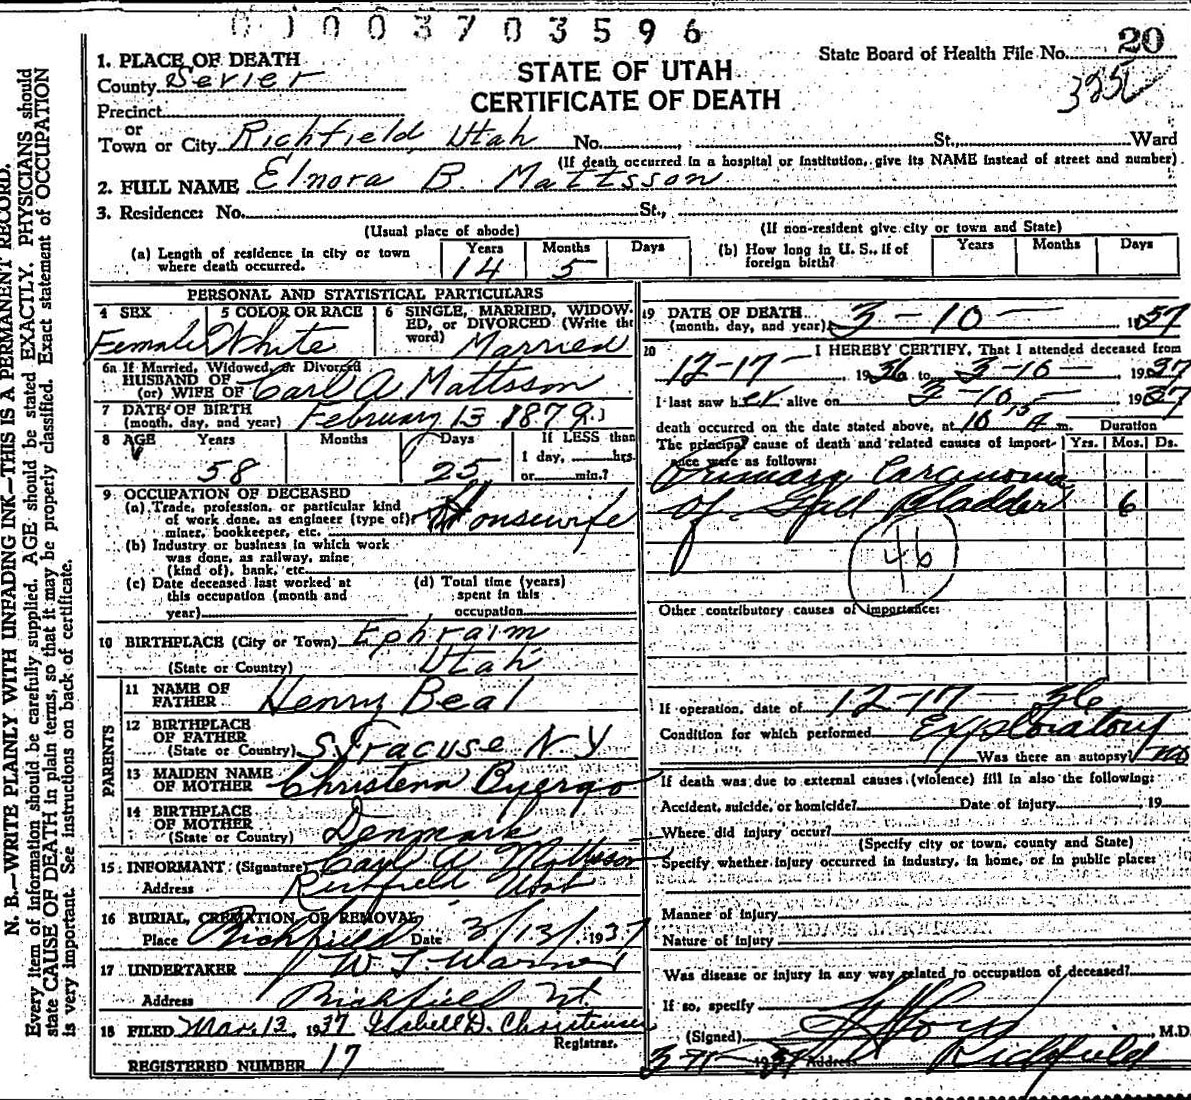 01003703596
1. PLACE OF DEATH
County Sevier
STATE OF UTAH
CERTIFICATE OF DEATH
State Board of Health File No. 20
Precinct
or
Town or City Richfield, Utah No. St., Ward
(If death occurred in a hospital or institution, give its NAME instead of street and number)
2. FULL NAME Elnora B. Mattsson
3. Residence: No. St.,
(Usual place of abode) (If non-resident give city or town and State)
(a) Length of residence in city or town where death occurred. Years 14 Months 5 Days
(b) How long in U. S., if of foreign birth? Years Months Days
PERSONAL AND STATISTICAL PARTICULARS
4 SEX Female
5 COLOR OR RACE White
6 SINGLE, MARRIED, WIDOWED, or DIVORCED (Write the word) Married
6a If Married, Widowed, or Divorced
HUSBAND OF
(or) WIFE OF Carl A Mattsson
7 DATE OF BIRTH
(month, day, and year) February 13 1879
8 AGE Years 58 Months Days 25 If LESS than 1 day, hrs. or min.?
9 OCCUPATION OF DECEASED
(a) Trade, profession, or particular kind
of work done, as engineer (type of) Housewife
miner, bookkeeper, etc.
(b) Industry or business in which work
was done, as railway, mine
(kind of), bank, etc.
(c) Date deceased last worked at this occupation (month and year)
(d) Total time (years) spent in this occupation
10 BIRTHPLACE (City or Town) Ephraim
(State or Country) Utah
PARENTS
11 NAME OF FATHER Henry Beal
12 BIRTHPLACE OF FATHER
(State or Country) Syracuse N Y
13 MAIDEN NAME OF MOTHER Christena Byergo
14 BIRTHPLACE OF MOTHER
(State or Country) Denmark
15 INFORMANT (Signature) Carl A Mattsson
Address Richfield Utah
16 BURIAL, CREMATION, OR REMOVAL
Place Richfield Date 3/13/1937
17 UNDERTAKER
Address Richfield Ut.
18 FILED Mar. 13, 1937 Isabell D. Christensen
Registrar.
REGISTERED NUMBER 17
19 DATE OF DEATH
(month, day, and year) 3-10- 1937
20 I HEREBY CERTIFY, That I attended deceased from
12-17- 1936 to 3-10- 1937
I last saw her alive on 3-10- 1937
death occurred on the date stated above, at 10 15 A m. Duration
The principal cause of death and related causes of importance were as follows: Yrs. Mos. Ds.
Primary Carcinoma
of Gall Bladder 6
46
Other contributory causes of importance:
If operation, date of 12-17- 36
Condition for which performed Exploratory
Was there an autopsy? no
If death was due to external causes (violence) fill in also the following:
Accident, suicide, or homicide? Date of injury , 19
Where did injury occur?
(Specify city or town, county and State)
Specify whether injury occurred in industry, in home, or in public place:
Manner of injury
Nature of injury
Was disease or injury in any way related to occupation of deceased?
If so, specify
(Signed) M.D.
Address Richfield
N. B.—WRITE PLAINLY WITH UNFADING INK—THIS IS A PERMANENT RECORD.
Every item of information should be carefully supplied. AGE should be stated EXACTLY. PHYSICIANS should
state CAUSE OF DEATH in plain terms, so that it may be properly classified. Exact statement of OCCUPATION
is very important. See instructions on back of certificate.